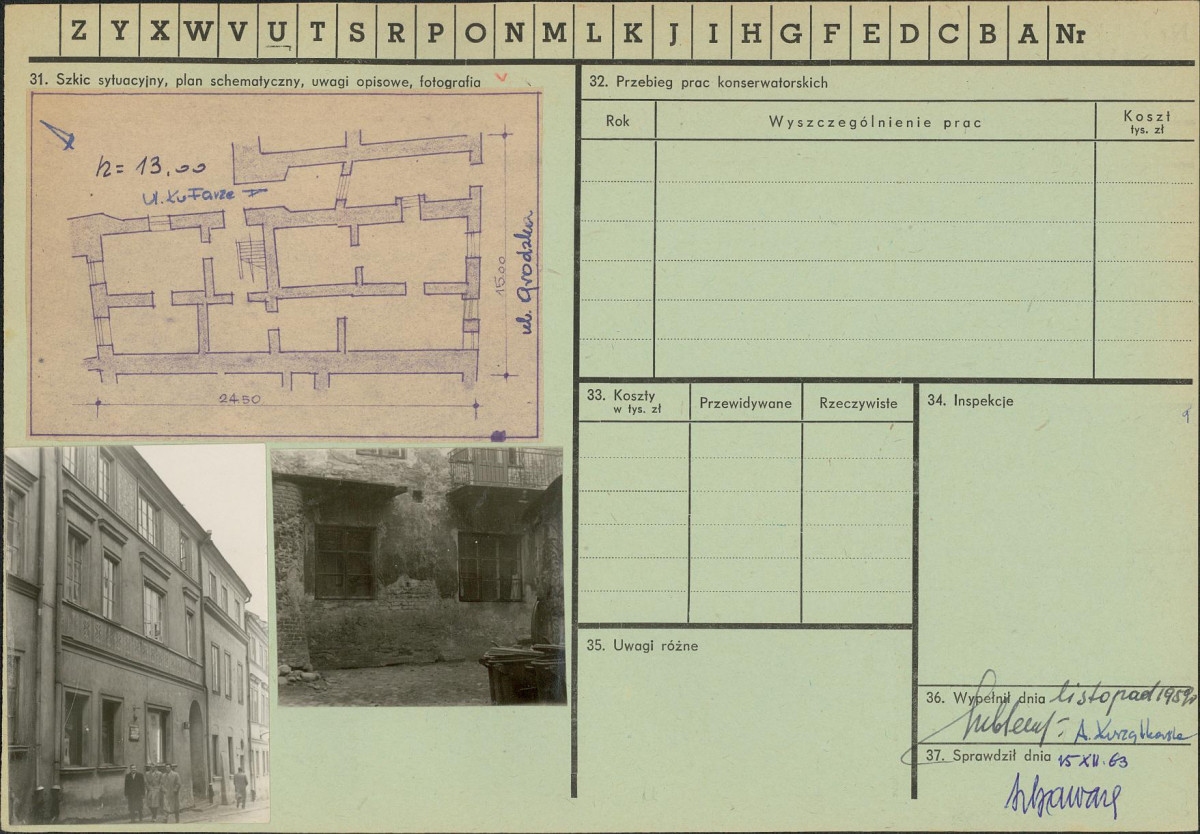 Z Y X W V U T S R P O N M L K J I H G F E D C B A Nr
31. Szkic sytuacyjny, plan schematyczny, uwagi opisowe, fotografia
h = 13.00
ul. Ku Farze
15.00
ul. Grodzka
24.50
32. Przebieg prac konserwatorskich
Rok
Wyszczególnienie prac
Koszt
tys. zł
33. Koszty
w tys. zł
Przewidywane
Rzeczywiste
34. Inspekcje
35. Uwagi różne
36. Wypełnił dnia listopad 1959
A.
37. Sprawdził dnia 15 XII. 63